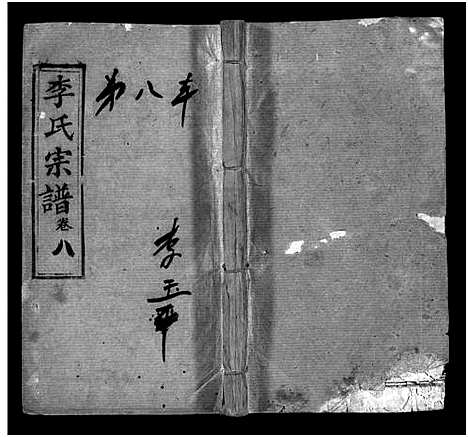 李氏宗譜卷八
第八本
李玉平